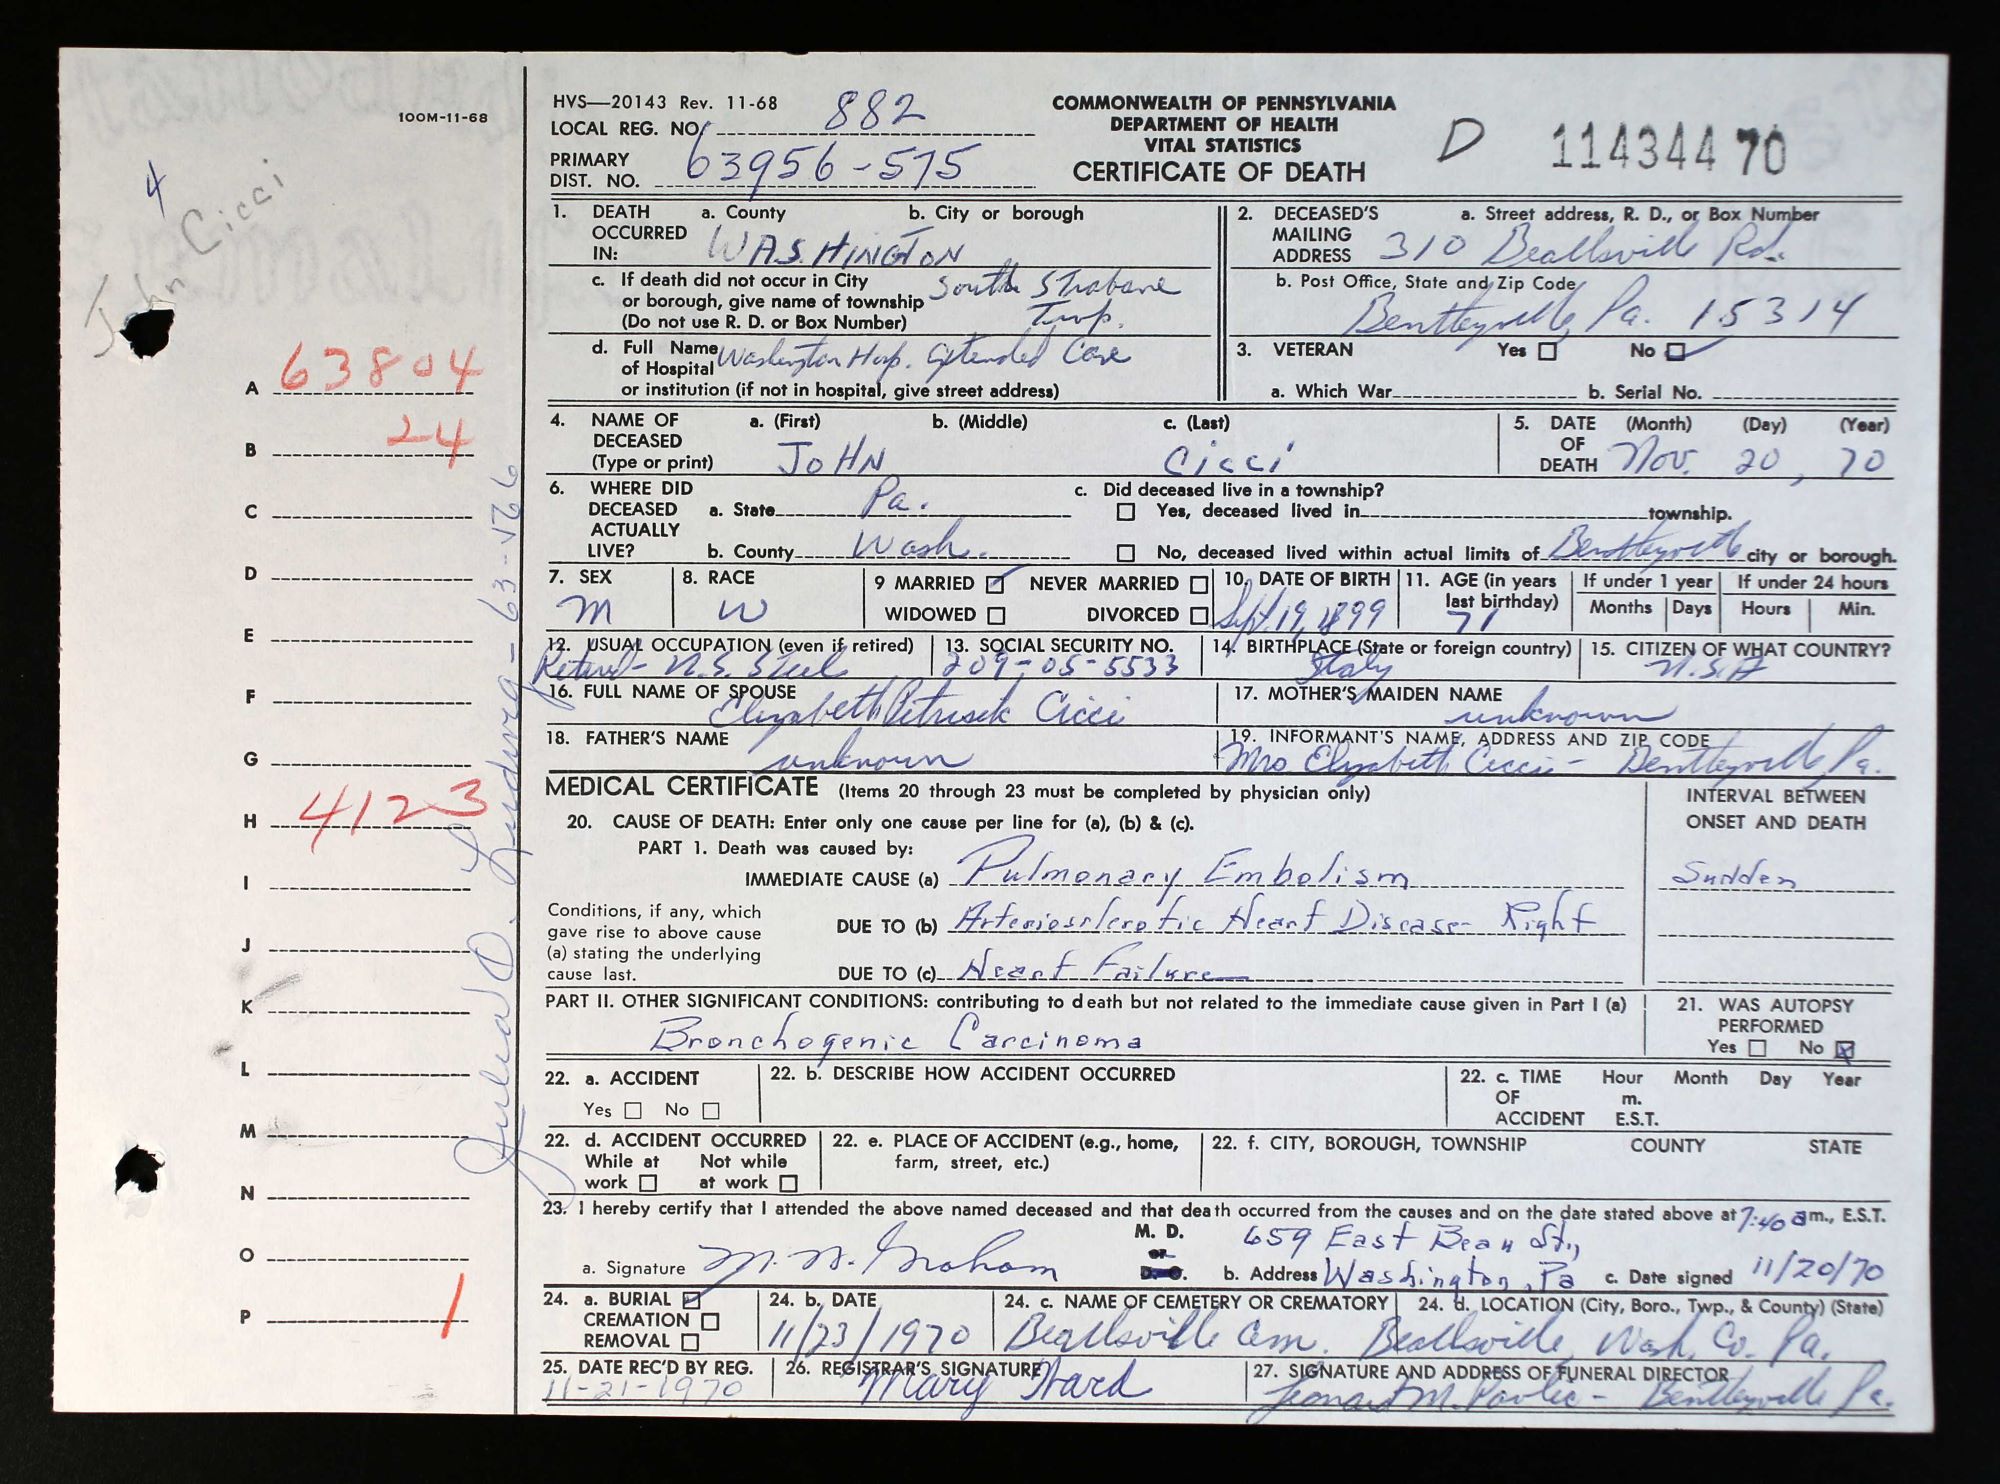 100M-11-68
4
John Cicci
A 63804
B 24
C
D
E
F
G
H 4123
I
J
K
L
M
N
O
P 1
HVS—20143 Rev. 11-68
LOCAL REG. NO. 882
PRIMARY
DIST. NO. 63956-575
COMMONWEALTH OF PENNSYLVANIA
DEPARTMENT OF HEALTH
VITAL STATISTICS
CERTIFICATE OF DEATH
D 114344 70
1. DEATH OCCURRED IN: a. County b. City or borough
WASHINGTON
c. If death did not occur in City
or borough, give name of township
(Do not use R. D. or Box Number)
South Strabane
Twp.
d. Full Name
of Hospital
or institution (if not in hospital, give street address)
Washington Hosp. Extended Care
2. DECEASED'S MAILING ADDRESS a. Street address, R. D., or Box Number
310 Beallsville Rd.
b. Post Office, State and Zip Code
Bentleyville, Pa. 15314
3. VETERAN Yes No
a. Which War b. Serial No.
4. NAME OF DECEASED (Type or print) a. (First) b. (Middle) c. (Last)
JOHN Cicci
5. DATE OF DEATH (Month) (Day) (Year)
Nov. 20, 70
6. WHERE DID DECEASED ACTUALLY LIVE?
a. State Pa.
b. County Wash.
c. Did deceased live in a township?
Yes, deceased lived in township.
No, deceased lived within actual limits of Bentleyville city or borough.
7. SEX
M
8. RACE
W
9 MARRIED NEVER MARRIED
WIDOWED DIVORCED
10. DATE OF BIRTH
Sept. 19, 1899
11. AGE (in years
last birthday)
71
If under 1 year
Months Days
If under 24 hours
Hours Min.
12. USUAL OCCUPATION (even if retired)
Retired - U.S. Steel
13. SOCIAL SECURITY NO.
209-05-5533
14. BIRTHPLACE (State or foreign country)
Italy
15. CITIZEN OF WHAT COUNTRY?
U.S.A
16. FULL NAME OF SPOUSE
Elizabeth Petrisek Cicci
17. MOTHER'S MAIDEN NAME
unknown
18. FATHER'S NAME
unknown
19. INFORMANT'S NAME, ADDRESS AND ZIP CODE
Mrs. Elizabeth Cicci - Bentleyville, Pa.
MEDICAL CERTIFICATE (Items 20 through 23 must be completed by physician only)
INTERVAL BETWEEN
ONSET AND DEATH
20. CAUSE OF DEATH: Enter only one cause per line for (a), (b) & (c).
PART 1. Death was caused by:
IMMEDIATE CAUSE (a) Pulmonary Embolism
Sudden
Conditions, if any, which
gave rise to above cause
(a) stating the underlying
cause last.
DUE TO (b) Arteriosclerotic Heart Disease - Right
DUE TO (c) Heart Failure
PART II. OTHER SIGNIFICANT CONDITIONS: contributing to death but not related to the immediate cause given in Part I (a)
Bronchogenic Carcinoma
21. WAS AUTOPSY
PERFORMED
Yes No
22. a. ACCIDENT
Yes No
22. b. DESCRIBE HOW ACCIDENT OCCURRED
22. c. TIME OF ACCIDENT Hour Month Day Year
m.
E.S.T.
22. d. ACCIDENT OCCURRED
While at work Not while at work
22. e. PLACE OF ACCIDENT (e.g., home,
farm, street, etc.)
22. f. CITY, BOROUGH, TOWNSHIP COUNTY STATE
23. I hereby certify that I attended the above named deceased and that death occurred from the causes and on the date stated above at 7:40 am., E.S.T.
a. Signature M. N. Graham
M. D.
or
D. O.
b. Address 659 East Beau St.,
Washington, Pa
c. Date signed 11/20/70
24. a. BURIAL
CREMATION
REMOVAL
24. b. DATE
11/23/1970
24. c. NAME OF CEMETERY OR CREMATORY
Beallsville Cem.
24. d. LOCATION (City, Boro., Twp., & County) (State)
Beallsville, Wash. Co. Pa.
25. DATE REC'D BY REG.
11-21-1970
26. REGISTRAR'S SIGNATURE
Mary Ward
27. SIGNATURE AND ADDRESS OF FUNERAL DIRECTOR
Leonard M. Pavlic - Bentleyville Pa.